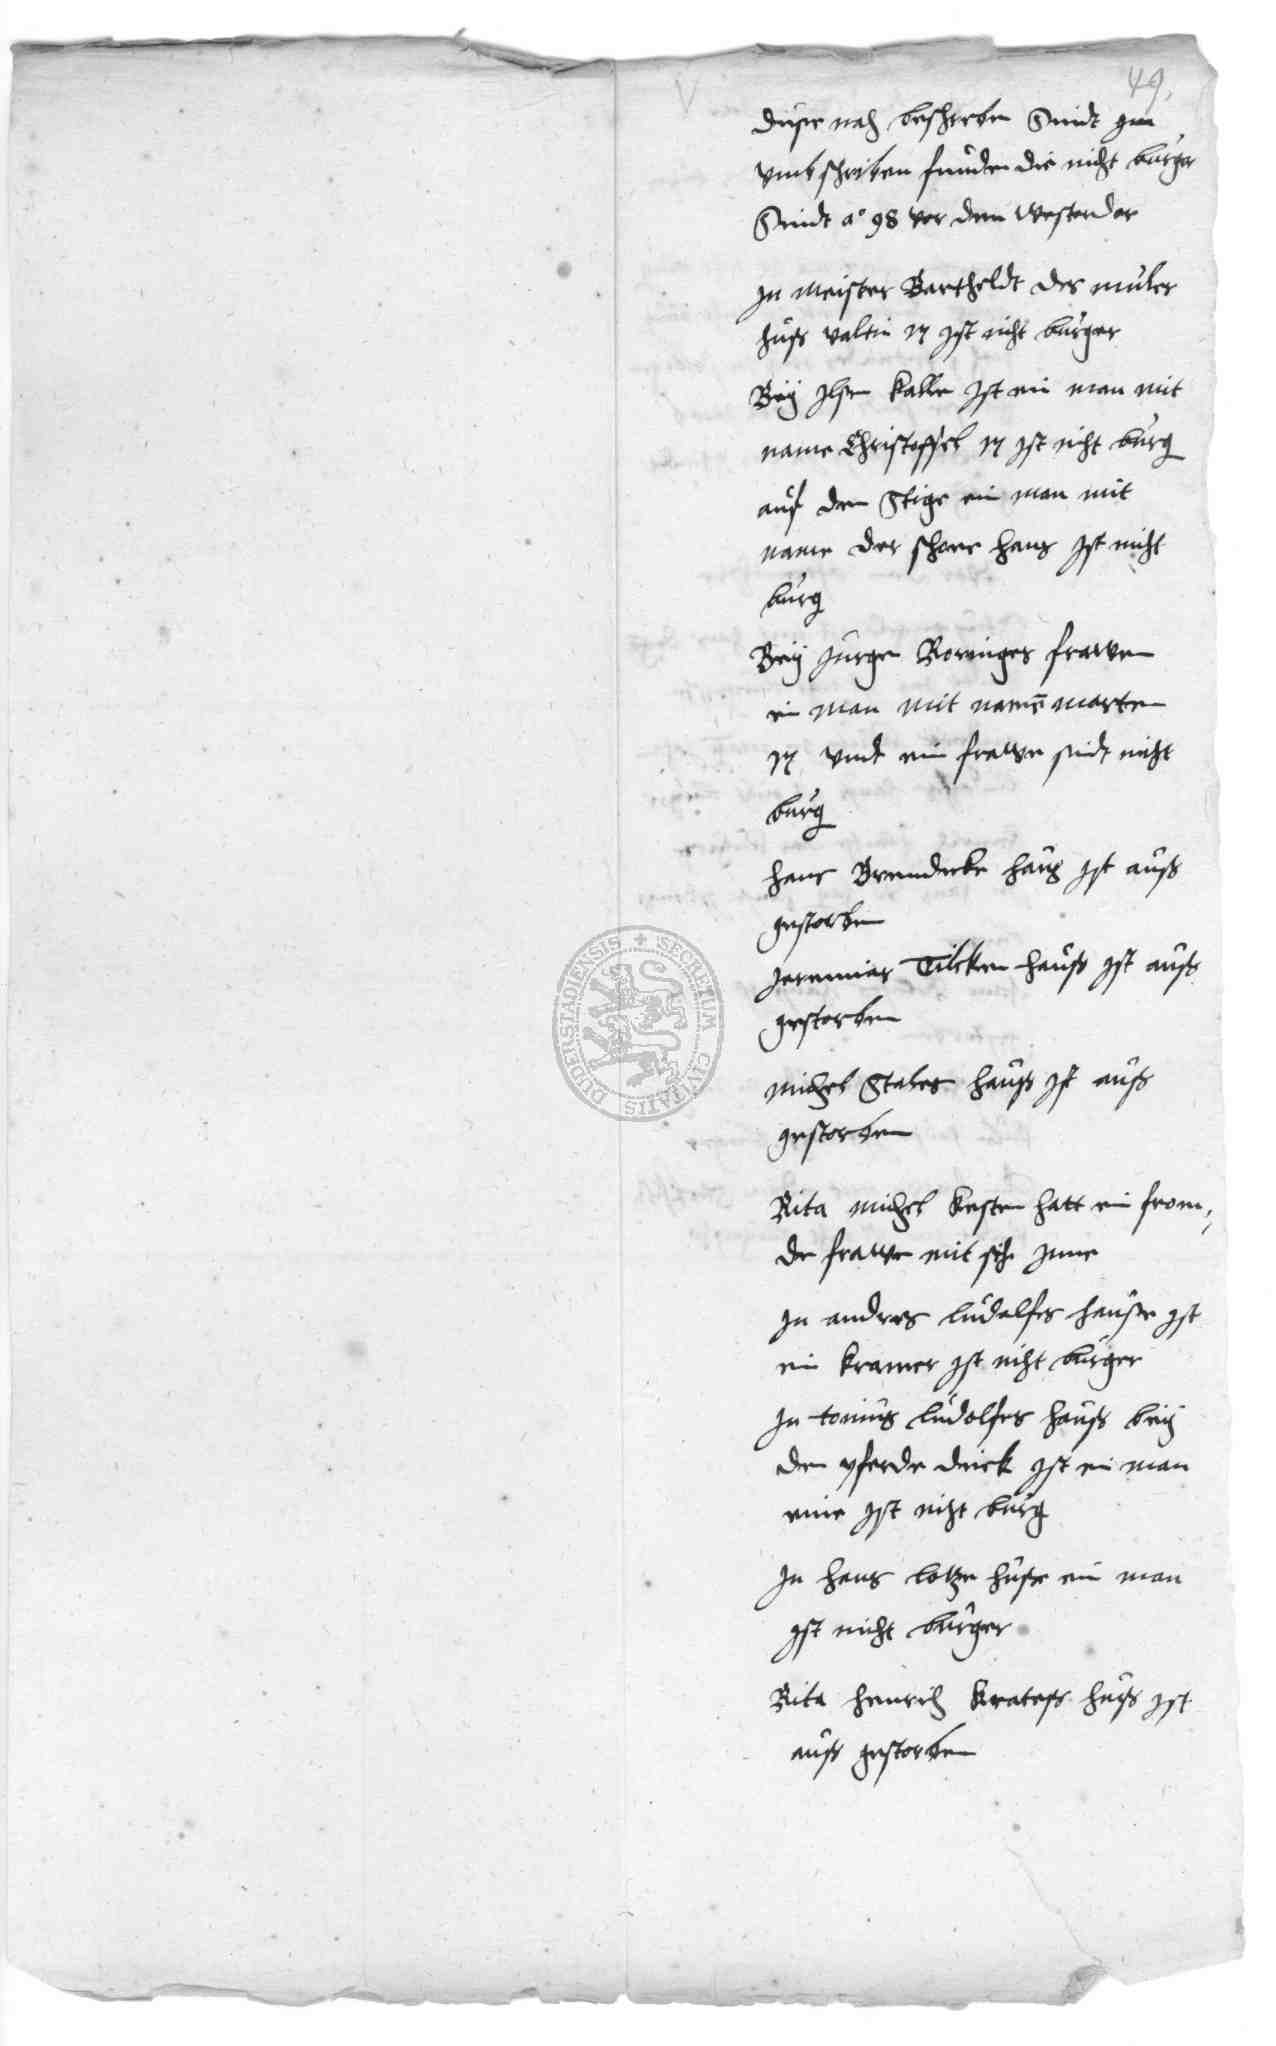 49.
Diese nach beschreben Seindt im
umbschreiben funden die nicht burger
Seindt a° 98 vor dem Westerdor
In meister Bartheldt des mulers
huß valtin N ist nicht burger
Beÿ Ilsen Kalle ist ein man mit
name Christoffel N ist nicht burg
auf dem Stige ein man mit
name der schore hans ist nicht
burg
Beÿ Jurgen Roringes frawen
ein man mit namen marten
N undt ein frawe seindt nicht
burg
hans Brendeke hauß ist auß
gestorben
Jeremias Tilcken hauß ist auß
gestorben
michel Stales hauß ist auß
gestorben
Rita michel Kesten hatt ein from,
de frawe mit sich Inne
In andres ludolfes hauße ist
ein Kramer ist nicht burger
In tonius ludolfes hauß beÿ
dem pferde deick ist ein man
inne ist nicht burg
In hans lotze huße ein man
ist nicht burger
Rita heinrich Krateß huß ist
auß gestorben
SECRETUM CIVITATIS DUDERSTADIENSIS